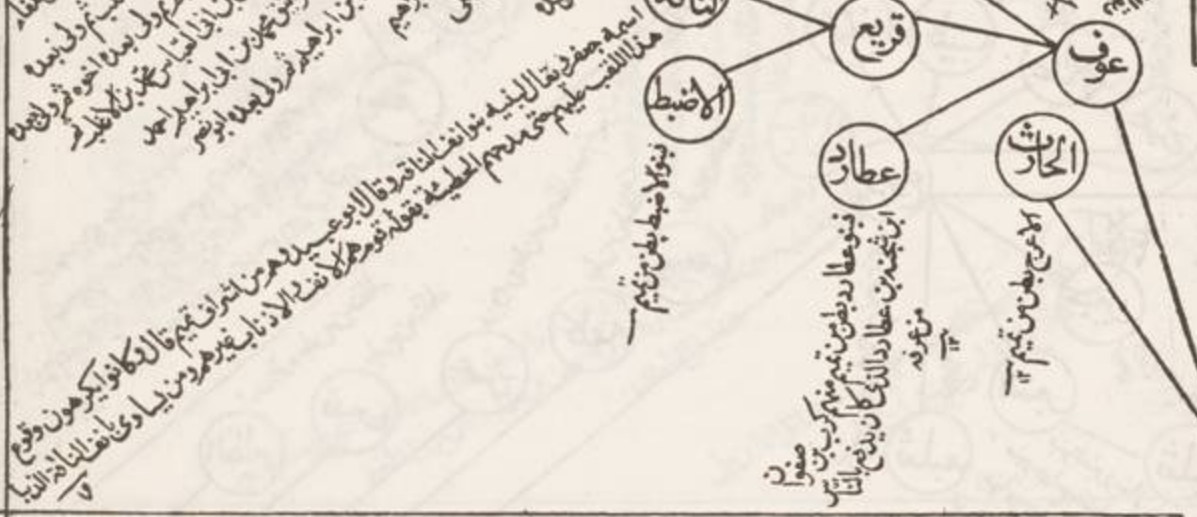 عوف
قريع
الناقة
الاضبط
عطارد
الحارث
الاعرج بطن من تميم ١٢
فبنو عطارد بطن من تميم منهم كرب بن صفوان
ابن شجنة بن عطارد الذي كان يدفع بالناس
من عرفه
١٢
فبنو الاضبط بطن من تميم
اسمه جعفر يقال لبنيه بنو انف الناقه وقال ابو عبيد وهم من اشراف تميم قال وكانوا يكرهون وقوع
هذا اللقب عليهم حتى مدحهم الحطيئة بقوله قوم هم الانف والاذناب غيرهم ومن يساوي بانف الناقة الذنبا